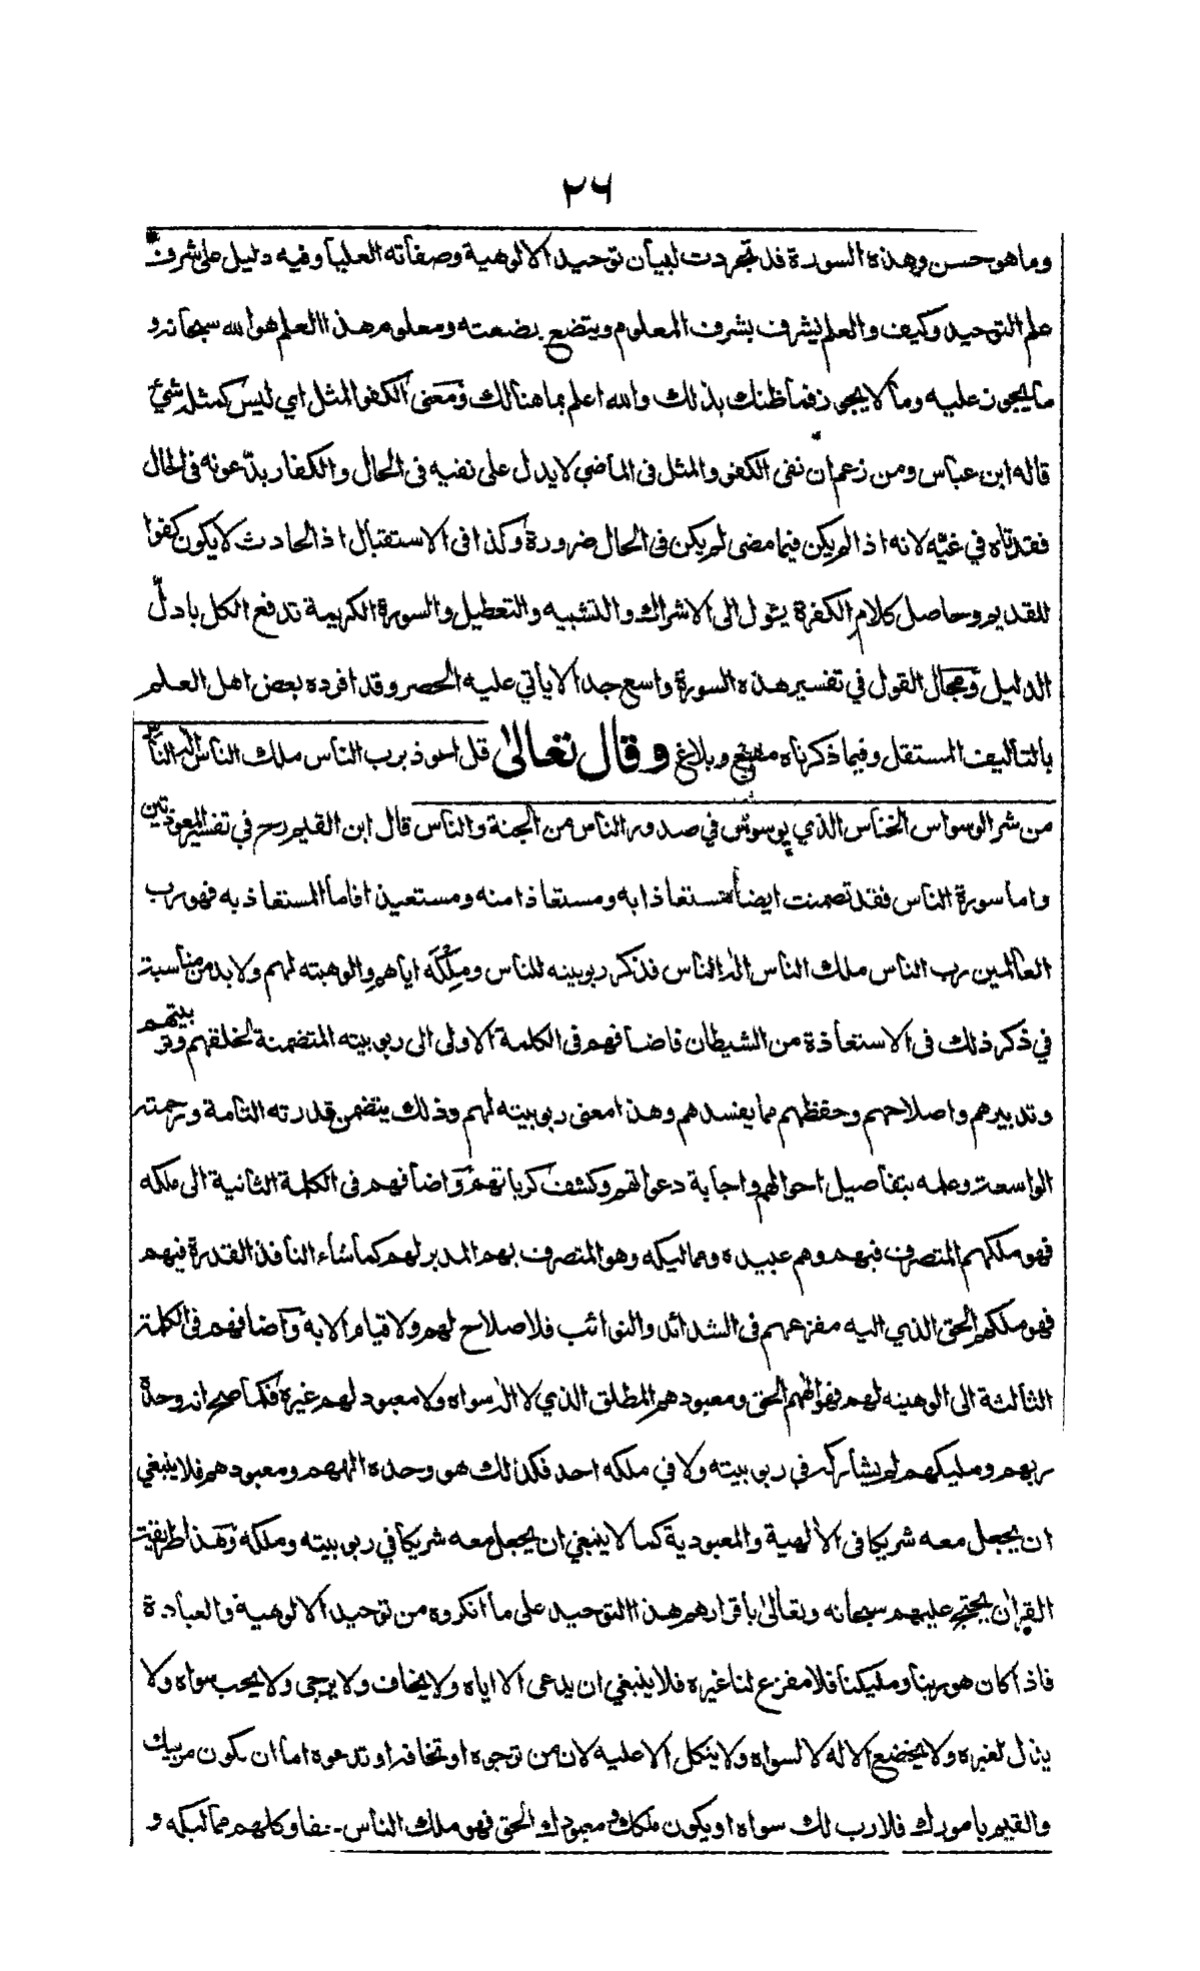 ٢٦
وما هو حسن وهذه السورة قد تجردت لبيان توحيد الالوهية وصفاته العليا وفيه دليل على شرف
علم التوحيد وكيف والعلم يشرف بشرف المعلوم ويتضع بضعته ومعلوم هذا العلم هو الله سبحانه و
ما يجوز عليه وما لا يجوز فما ظنك بذلك والله اعلم بما هنالك ومعنى الكفو المثل اي ليس كمثله شيء
قاله ابن عباس ومن زعم ان نفى الكفو والمثل فى الماضي لا يدل على نفيه فى الحال والكفار يدّعونه فى الحال
فقد تاه في غيّه لانه اذا لم يكن فيما مضى لم يكن فى الحال ضرورة وكذا فى الاستقبال اذ الحادث لا يكون كفوا
للقديم وحاصل كلام الكفرة يئول الى الاشراك والتشبيه والتعطيل والسورة الكريمة تدفع الكل بادلّ
الدليل ومجال القول في تفسير هذه السورة واسع جدا لا ياتي عليه الحصر وقد افرده بعض اهل العلم
بالتاليف المستقل وفيما ذكرناه مقنع وبلاغ وقال تعالى قل اعوذ برب الناس ملك الناس اله الناس
من شر الوسواس الخناس الذي يوسوس في صدور الناس من الجنة والناس قال ابن القيم رح في تفسير المعوذتين
واما سورة الناس فقد تضمنت ايضا مستعاذا به ومستعاذا منه ومستعيذا فاما المستعاذ به فهو رب
العالمين رب الناس ملك الناس اله الناس فذكر ربوبيته للناس وملكه اياهم والوهيته لهم ولا بد من مناسبة
في ذكر ذلك فى الاستعاذة من الشيطان فاضافهم فى الكلمة الاولى الى ربوبيته المتضمنة لخلقهم وتربيتهم
وتدبيرهم واصلاحهم وحفظهم مما يفسدهم وهذا معنى ربوبيته لهم وذلك يتضمن قدرته التامة ورحمته
الواسعة وعلمه بتفاصيل احوالهم واجابة دعواتهم وكشف كرباتهم واضافهم فى الكلمة الثانية الى ملكه
فهو ملكهم المتصرف فيهم وهم عبيده ومماليكه وهو المتصرف بهم المدبر لهم كما شاء النافذ القدرة فيهم
فهو ملكهم الحق الذي اليه مفزعهم فى الشدائد والنوائب فلا صلاح لهم ولا قيام الا به واضافهم فى الكلمة
الثالثة الى الوهيته لهم فهو الههم الحق ومعبودهم المطلق الذي لا اله سواه ولا معبود لهم غيره فكما صح انه وحده
ربهم ومليكهم لم يشاركه في ربوبيته ولا في ملكه احد فكذلك هو وحده الههم ومعبودهم فلا ينبغي
ان يجعل معه شريكا فى الالهية والمعبودية كما لا ينبغي ان يجعل معه شريكا في ربوبيته وملكه وهذا طريقة
القران يحتج عليهم سبحانه وتعالى باقرارهم هذا التوحيد على ما انكروه من توحيد الالوهية والعبادة
فاذا كان هو ربنا ومليكنا فلا مفزع لنا غيره فلا ينبغي ان يدعى الا اياه ولا يخاف ولا يرجى ولا يحب سواه ولا
يذل لغيره ولا يخضع الا له لا لسواه ولا يتكل الا عليه لان من ترجوه او تخافه او تدعوه اما ان يكون مربيك
والقيم بامورك فلا رب لك سواه او يكون ملكك ومعبودك الحق فهو ملك الناس حقا وكلهم مماليكه و